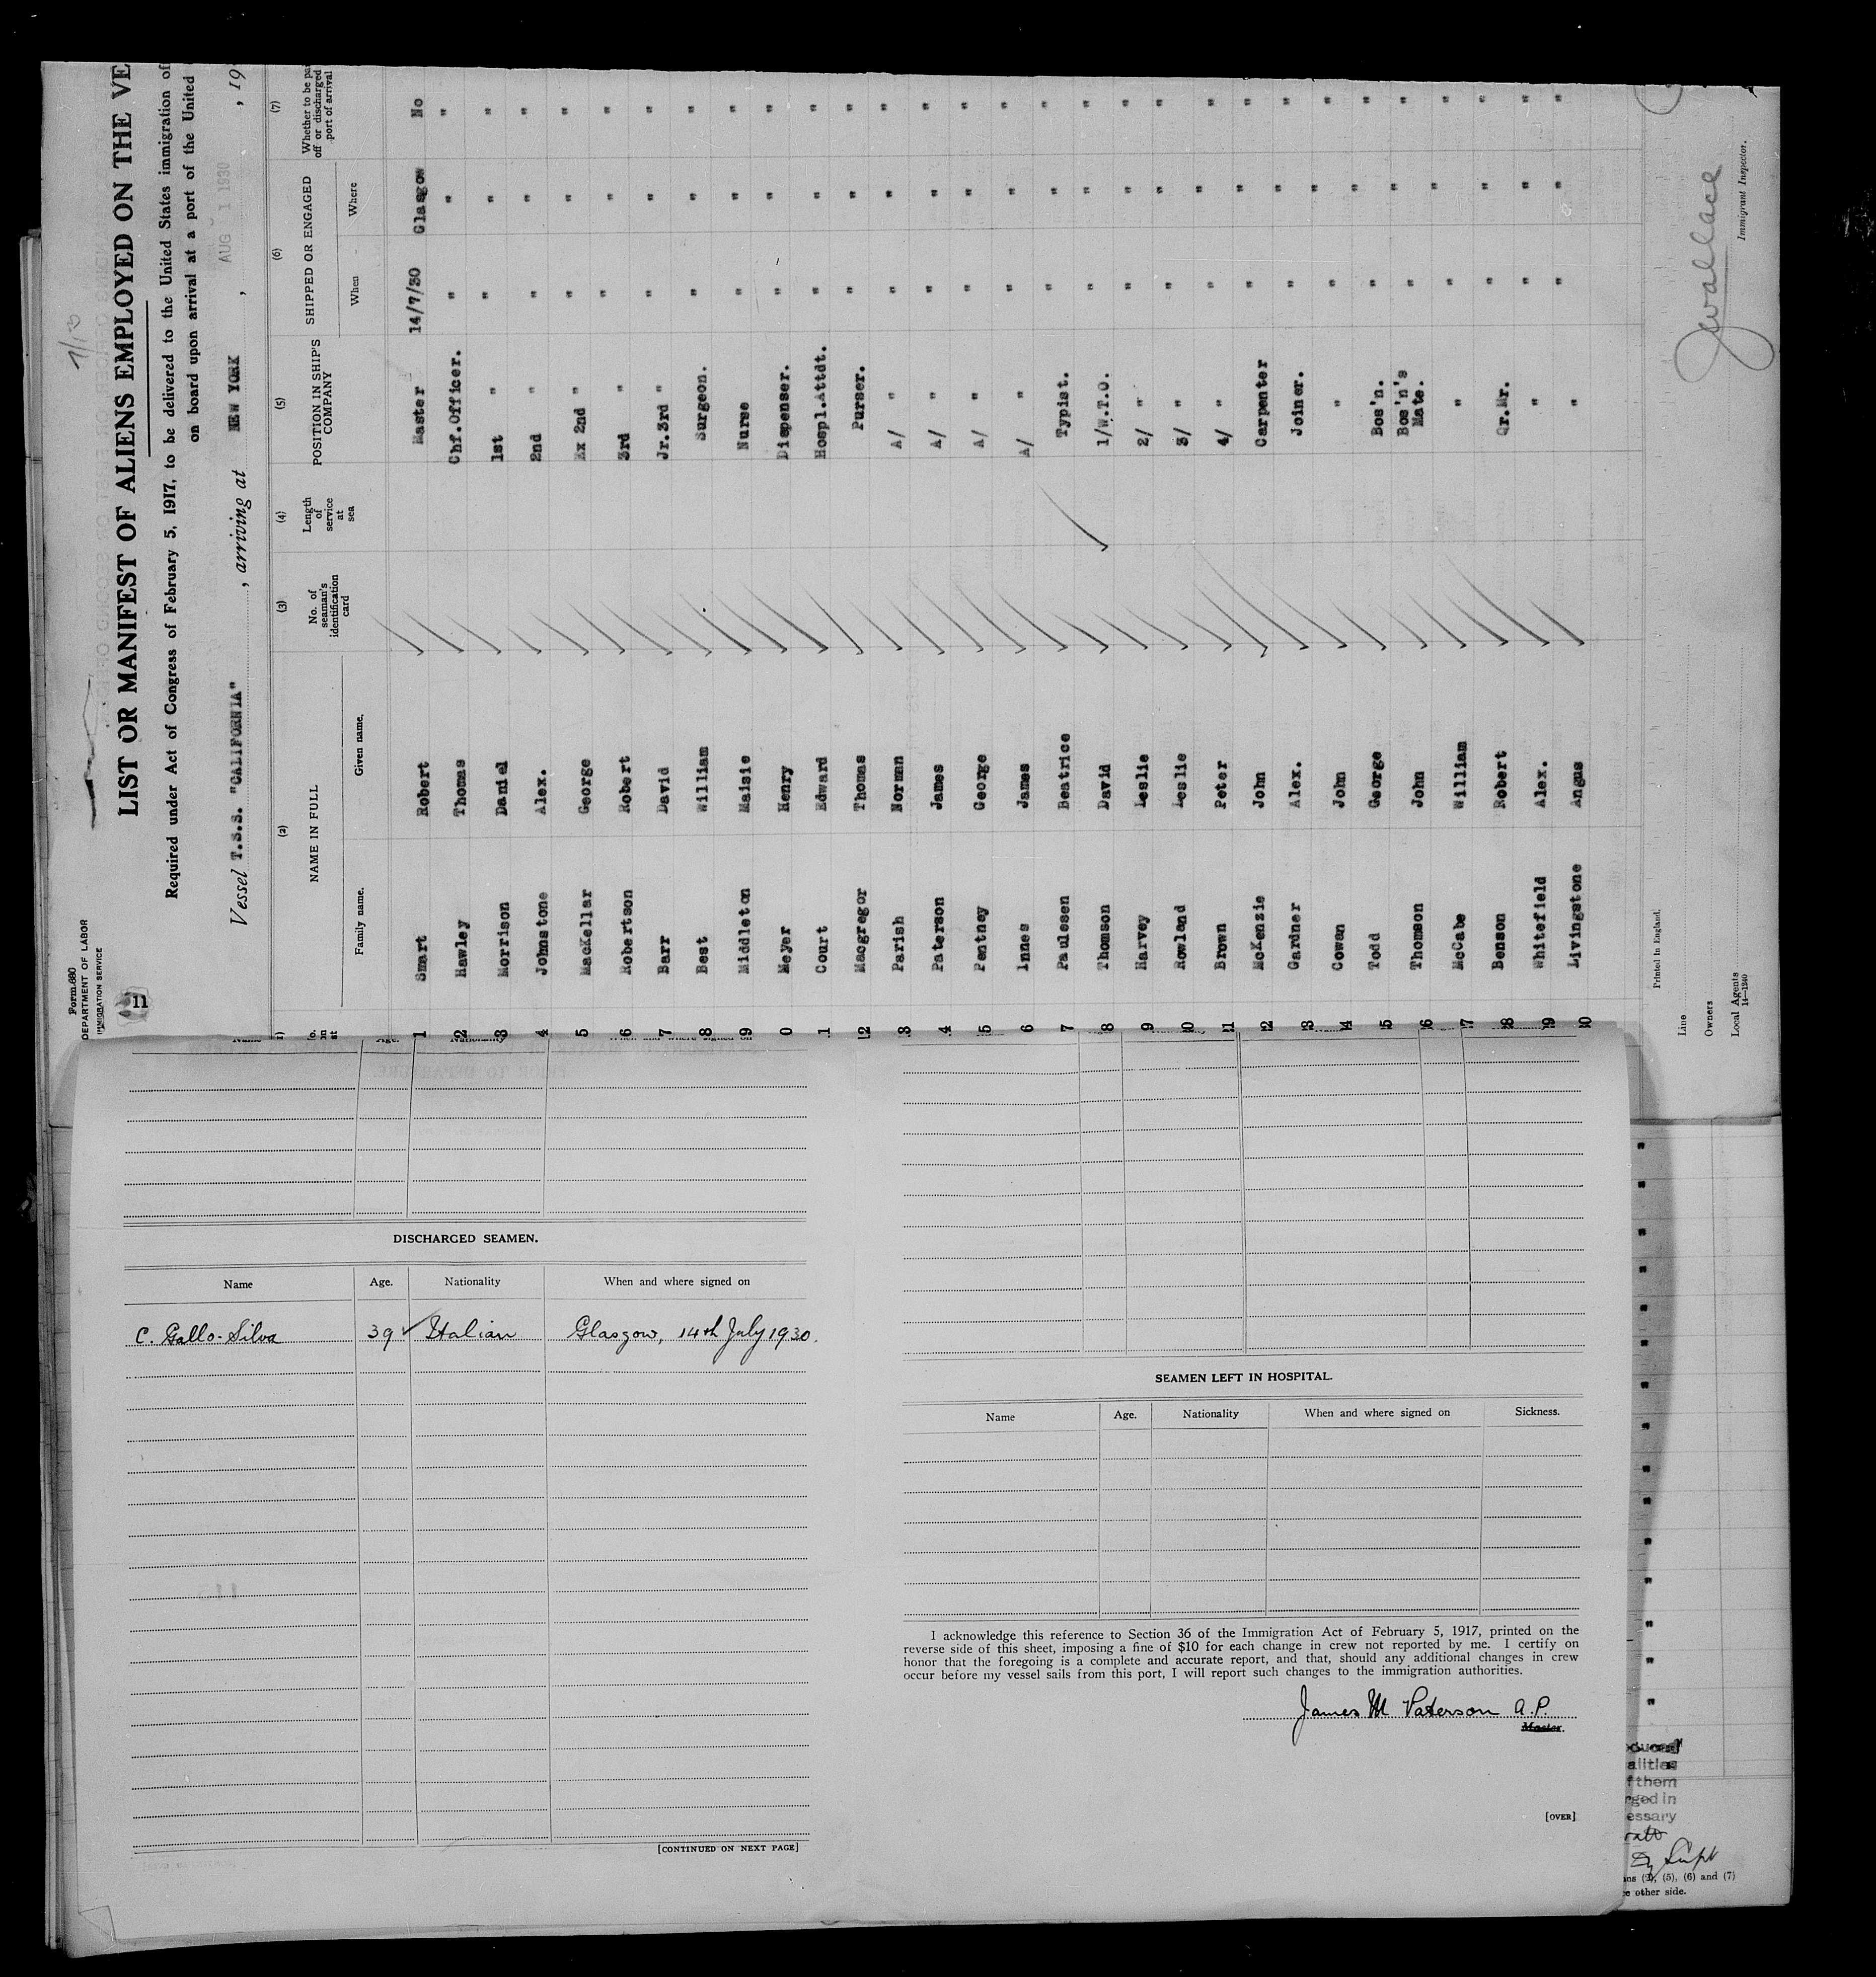 Form 680
DEPARTMENT OF LABOR
IMMIGRATION SERVICE
11
LIST OR MANIFEST OF ALIENS EMPLOYED ON THE VE
Required under Act of Congress of February 5, 1917, to be delivered to the United States immigration of
on board upon arrival at a port of the United
Vessel T.S.S. "CALIFORNIA", arriving at NEW YORK, AUG 1 1930, 19
(2) (3) (4) (5) (6) (7)
NAME IN FULL No. of seaman's identification card Length of service at sea POSITION IN SHIP'S COMPANY SHIPPED OR ENGAGED Whether to be pai off or discharged port of arrival
Family name. Given name. When Where
1 Smart Robert Master 14/7/30 Glasgow No
2 Hawley Thomas Chf.Officer. " " "
3 Morrison Daniel 1st " " " "
4 Johnstone Alex. 2nd " " " "
5 MacKellar George Ex 2nd " " " "
6 Robertson Robert 3rd " " " "
7 Barr David Jr.3rd " " " "
8 Best William Surgeon. " " "
9 Middleton Maisie Nurse " " "
0 Meyer Henry Dispenser. " " "
1 Court Edward Hospl.Attdt. " " "
12 Macgregor Thomas Purser. " " "
3 Parish Norman A/ " " " "
4 Paterson James A/ " " " "
5 Pentney George A/ " " " "
6 Innes James A/ " " " "
7 Paulesen Beatrice Typist. " " "
8 Thomson David 1/W.T.O. " " "
9 Harvey Leslie 2/ " " " "
0 Rowland Leslie 3/ " " " "
1 Brown Peter 4/ " " " "
2 McKenzie John Carpenter " " "
3 Gardner Alex. Joiner. " " "
4 Cowan John " " " "
5 Todd George Bos'n. " " "
6 Thomson John Bos'n's Mate. " " "
7 McCabe William " " " "
8 Benson Robert Qr.Mr. " " "
9 Whitefield Alex. " " " "
0 Livingstone Angus " " " "
Printed in England.
Line
Owners
Local Agents
14—1240
JWallace
Immigrant Inspector.
DISCHARGED SEAMEN.
Name Age. Nationality When and where signed on
C. Gallo-Silva 39 Italian Glasgow, 14th July 1930.
[CONTINUED ON NEXT PAGE]
SEAMEN LEFT IN HOSPITAL.
Name Age. Nationality When and where signed on Sickness.
I acknowledge this reference to Section 36 of the Immigration Act of February 5, 1917, printed on the
reverse side of this sheet, imposing a fine of $10 for each change in crew not reported by me. I certify on
honor that the foregoing is a complete and accurate report, and that, should any additional changes in crew
occur before my vessel sails from this port, I will report such changes to the immigration authorities.
James M Paterson A.P.
Master.
[OVER]
alities
f them
rged in
essary
Supt
ns (2), (5), (6) and (7)
e other side.